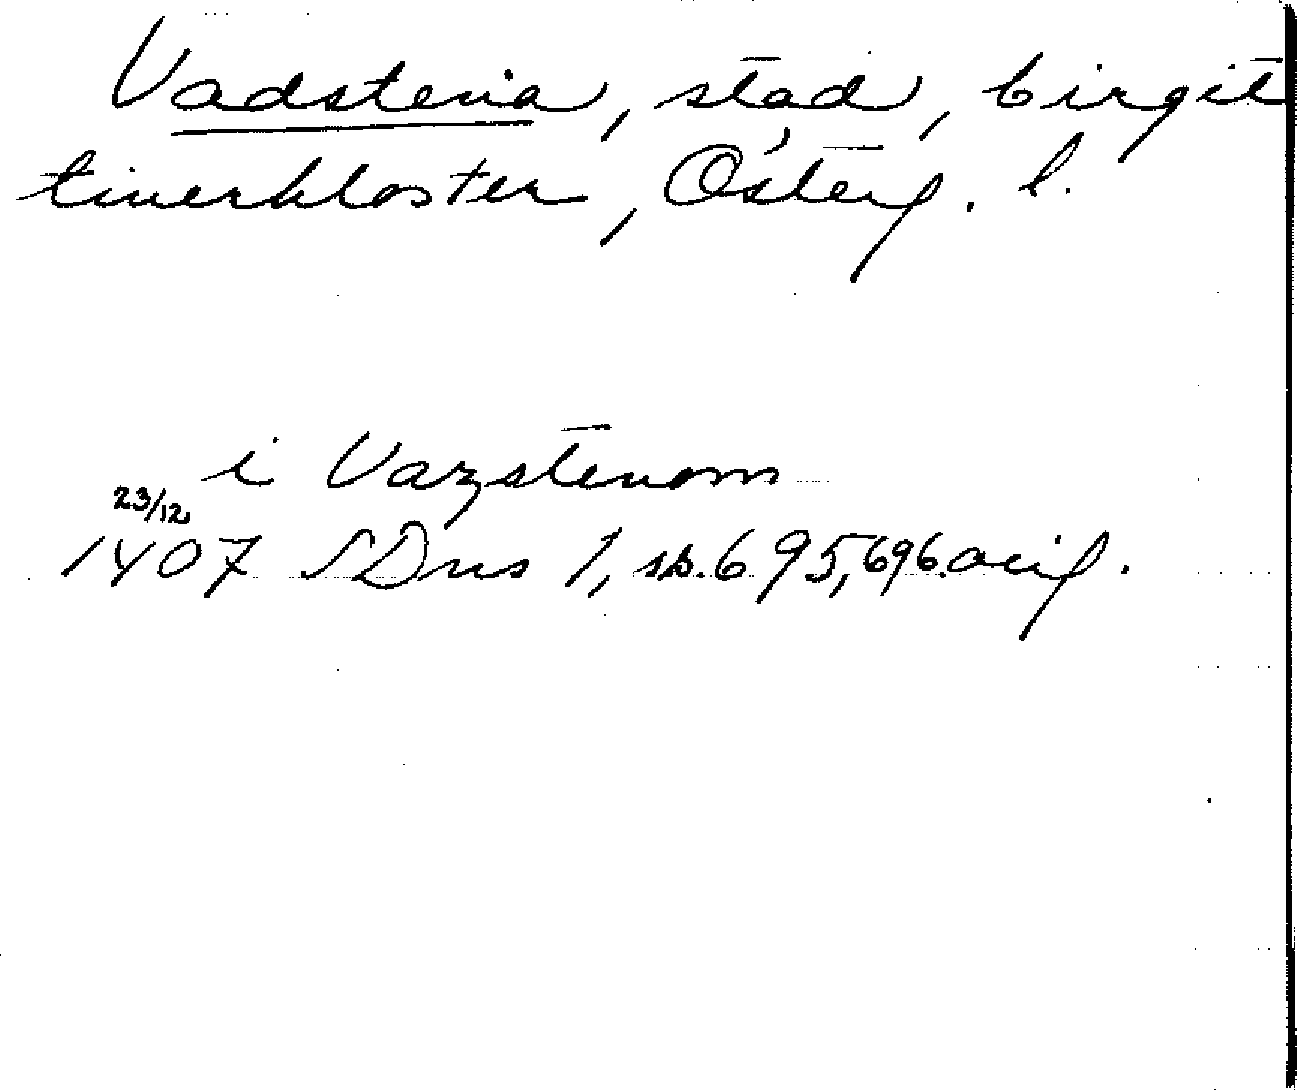 Vadstena, stad, birgit
tinerkloster, Österg. l.
i Vazstenom
23/12
1407 SDns 1, sp. 695, 696. orig.